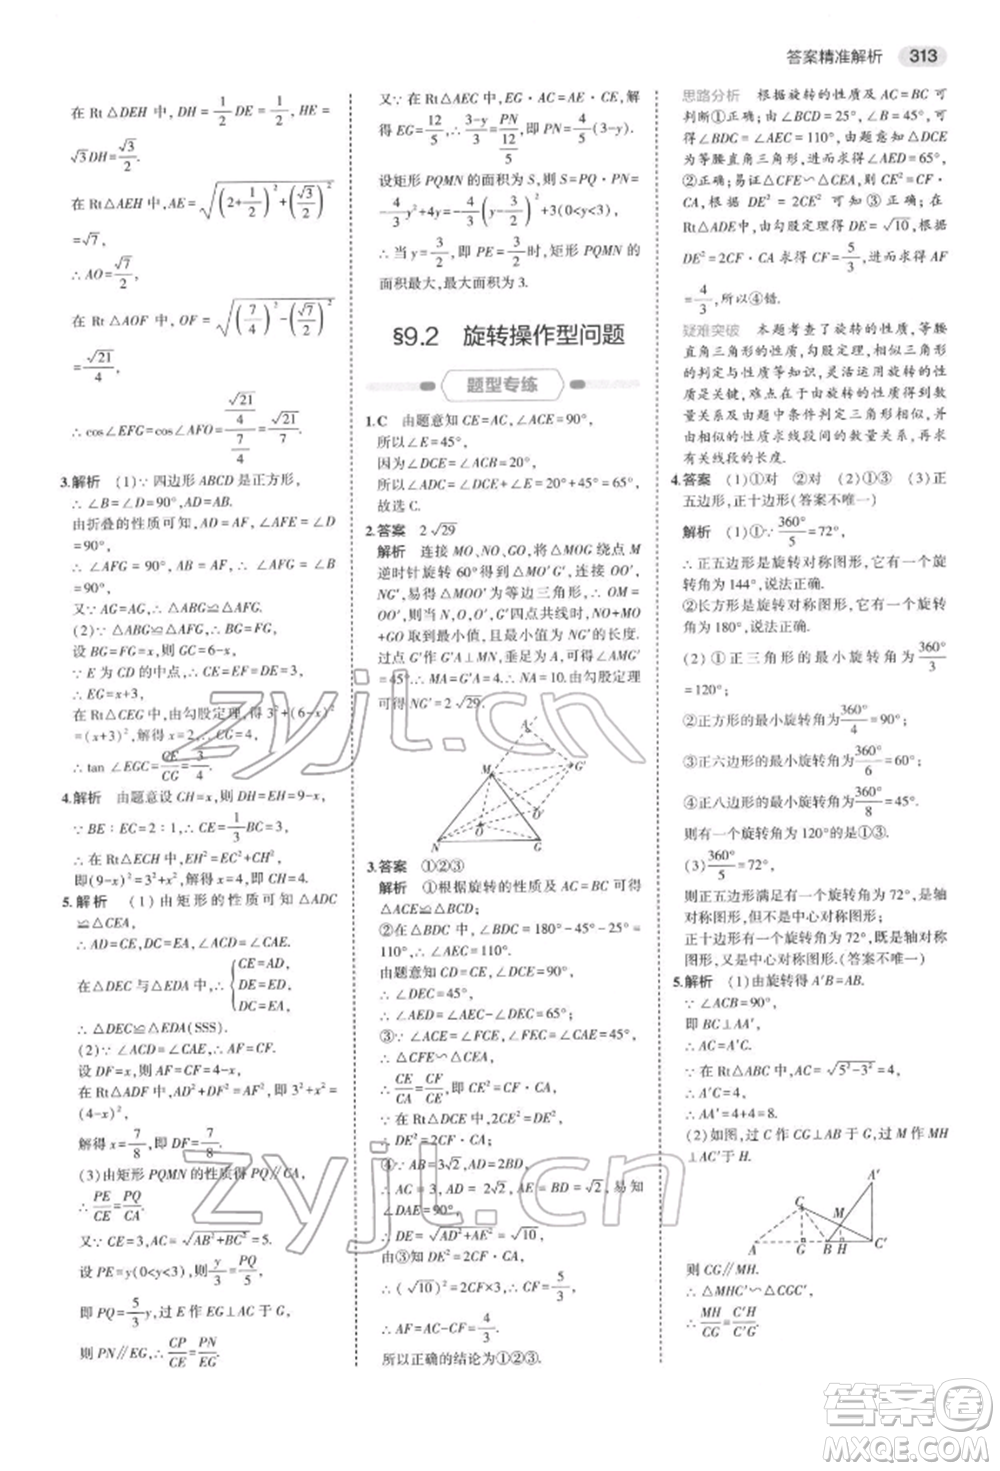 答案精准解析 313
在 Rt△DEH 中,DH=1/2 DE=1/2, HE=
√3DH=√3/2.
在 Rt△AEH 中,AE=√((2+1/2)²+(√3/2)²)
=√7,
∴AO=√7/2,
在 Rt△AOF 中,OF=√((7/4)²-(√7/2)²)=
√21/4,
∴cos∠EFG=cos∠AFO=(√21/4)/(7/4)=√21/7.
3.解析 (1)∵四边形 ABCD 是正方形,
∴∠B=∠D=90°,AD=AB.
由折叠的性质可知,AD=AF,∠AFE=∠D
=90°,
∴∠AFG=90°,∴∠AFG=∠B.
又∵AG=AG,∴△ABG≌△AFG.
(2)∵△ABG≌△AFG,∴BG=FG.
设 BG=FG=x,则 GC=6-x,
∵E 为 CD 的中点,∴CE=DE=EF=3,
∴EG=x+3.
在 Rt△CEG 中,由勾股定理,得 3²+(6-x)²
=(x+3)²,解得 x=2,∴CG=4,
∴tan∠EGC=CE/CG=3/4.
4.解析 由题意设 CH=x,则 DH=EH=9-x,
∵BE∶EC=2∶1,∴CE=1/3 BC=3,
∴在 Rt△ECH 中,EH²=EC²+CH²,
即(9-x)²=3²+x²,解得 x=4,∴CH=4.
5.解析 (1)由矩形的性质可知△ADC
≌△CEA,
∴AD=CE,DC=EA,∠ACD=∠CAE,
在△DEC 与△EDA 中,{CE=AD, DE=ED, DC=EA,
∴△DEC≌△EDA(SSS).
(2)∵∠ACD=∠CAE,∴AF=CF.
设 DF=x,则 AF=CF=4-x,
在 Rt△ADF 中,AD²+DF²=AF²,即 3²+x²=
(4-x)²,
解得 x=7/8,即 DF=7/8.
(3)由矩形 PQMN 的性质得 PQ∥CA,
∴PE/CE=PQ/CA.
又∵CE=3,AC=√(AB²+BC²)=5.
设 PE=y(0<y<3),∴y/3=PQ/5,
即 PQ=5/3 y,过 E 作 EG⊥AC 于 G,
则 PN∥EG,∴CP/CE=PN/EG.
又∵在 Rt△AEC 中,EG·AC=AE·CE,解
得 EG=12/5,∴(3-y)/3=PN/(12/5),即 PN=4/5(3-y).
设矩形 PQMN 的面积为 S,则 S=PQ·PN=
-4/3 y²+4y=-4/3(y-3/2)²+3(0<y<3),
∴当 y=3/2,即 PE=3/2时,矩形 PQMN 的
面积最大,最大面积为 3.
§9.2 旋转操作型问题
题型专练
1.C 由题意知 CE=AC,∠ACE=90°,
所以∠E=45°,
因为∠DCE=∠ACE-∠ACD=20°,
所以∠ADC=∠E+∠DCE=45°+20°=65°,
故选 C.
2.答案 2√29
解析 连接 MO,NO,GO,将△MOG 绕点 M
逆时针旋转 60°得到△MO′G′,连接 OO′,
NG′,易得△MOO′为等边三角形,∴OM=
OO′,则当 N,O,O′,G′四点共线时,NO+MO
+GO 取到最小值,且最小值为 NG′的长度.
过点 G′作 G′A⊥MN,垂足为 A,∠AMG′
=45°,∴MA=G′A=4.∴NA=10.由勾股定理
可得 NG′=2√29.
A
G′
M
O′
O
N
G
3.答案 ①②③
解析 ①根据旋转的性质及AC=BC可得
△ACE≌△BCD.
②在△BDC 中,∠BDC=180°-45°-25°=
110°,∴∠AEC=110°.
由题意知 CD=CE,∠DCE=90°,
∴∠DEC=45°,
∴∠AED=∠AEC-∠DEC=65°.
③∵∠ACE=∠FCE,∠FEC=∠CAE=45°,
∴△CFE∽△CEA,
∴CE/CF=CA/CE,即 CE²=CF·CA.
∵在 Rt△DCE 中,2CE²=DE²,
∴DE²=2CF·CA.
④∵AB=3√2,AD=2BD,
∴AC=3,AD=2√2,BD=AE=√2,易知
∠DAE=90°,
∴DE=√(AD²+AE²)=√10,
由③知 DE²=2CF·CA,
∴(√10)²=2CF×3,∴CF=5/3,
∴AF=AC-CF=4/3.
所以正确的结论为①②③.
思路分析 根据旋转的性质及 AC=BC 可
判断①正确;由∠BCD=25°,∠B=45°,可
得∠BDC=∠AEC=110°,由题意知△DCE
为等腰直角三角形,所以求出∠AED=65°,
②正确;易证△CFE∽△CEA,所以CE²=CF·
CA,根据 DE²=2CE² 可知③正确;在
Rt△ADE 中,由勾股定理得 DE=√10,根据
DE²=2CF·CA 可求出 CF=5/3,进而得出 AF
=4/3,所以④错.
疑难突破 本题考查了旋转的性质,等腰
直角三角形的性质,勾股定理,相似三角形
的判定与性质等知识,灵活运用旋转的性
质是关键,难点在于利用相似找到边之间的
数量关系以及由题中条件判定三角形相似,
并根据边的数量关系求线段间的数量关系
有关线段的长度.
4.答案 (1)①对 ②对 (2)①③ (3)正
五边形,正十边形(答案不唯一)
解析 (1)①∵360°/5=72°,
∴正五边形是旋转对称图形,它有一个旋
转角为 144°,说法正确.
②长方形是旋转对称图形,它有一个旋转
角为 180°,说法正确.
(2)①正三角形的最小旋转角为360°/3
=120°;
②正方形的最小旋转角为360°/4=90°;
③正六边形的最小旋转角为360°/6=60°;
④正八边形的最小旋转角为360°/8=45°.
则有一个旋转角为 120°的是①③.
(3)360°/5=72°,
则正五边形满足有一个旋转角为 72°,是轴
对称图形,但不是中心对称图形.
正十边形有一个旋转角为72°,既是轴对称
图形,又是中心对称图形.(答案不唯一)
5.解析 (1)由旋转得 A′B=AB.
∵∠ACB=90°,
即 BC⊥AA′,
∴AC=A′C.
∵在 Rt△ABC 中,AC=√(5²-3²)=4,
∴A′C=4,
∴AA′=4+4=8.
(2)如图,过 C 作 CG⊥AB 于 G,过 M 作 MH
⊥AC′于 H,
A′
C
M
A
G
B
H
C′
则 CG∥MH.
∴△MHC′∽△CGC′,
∴MH/CG=C′H/C′G.
zyjl.cn
zyjl.cn
答案圈
MXQE.COM